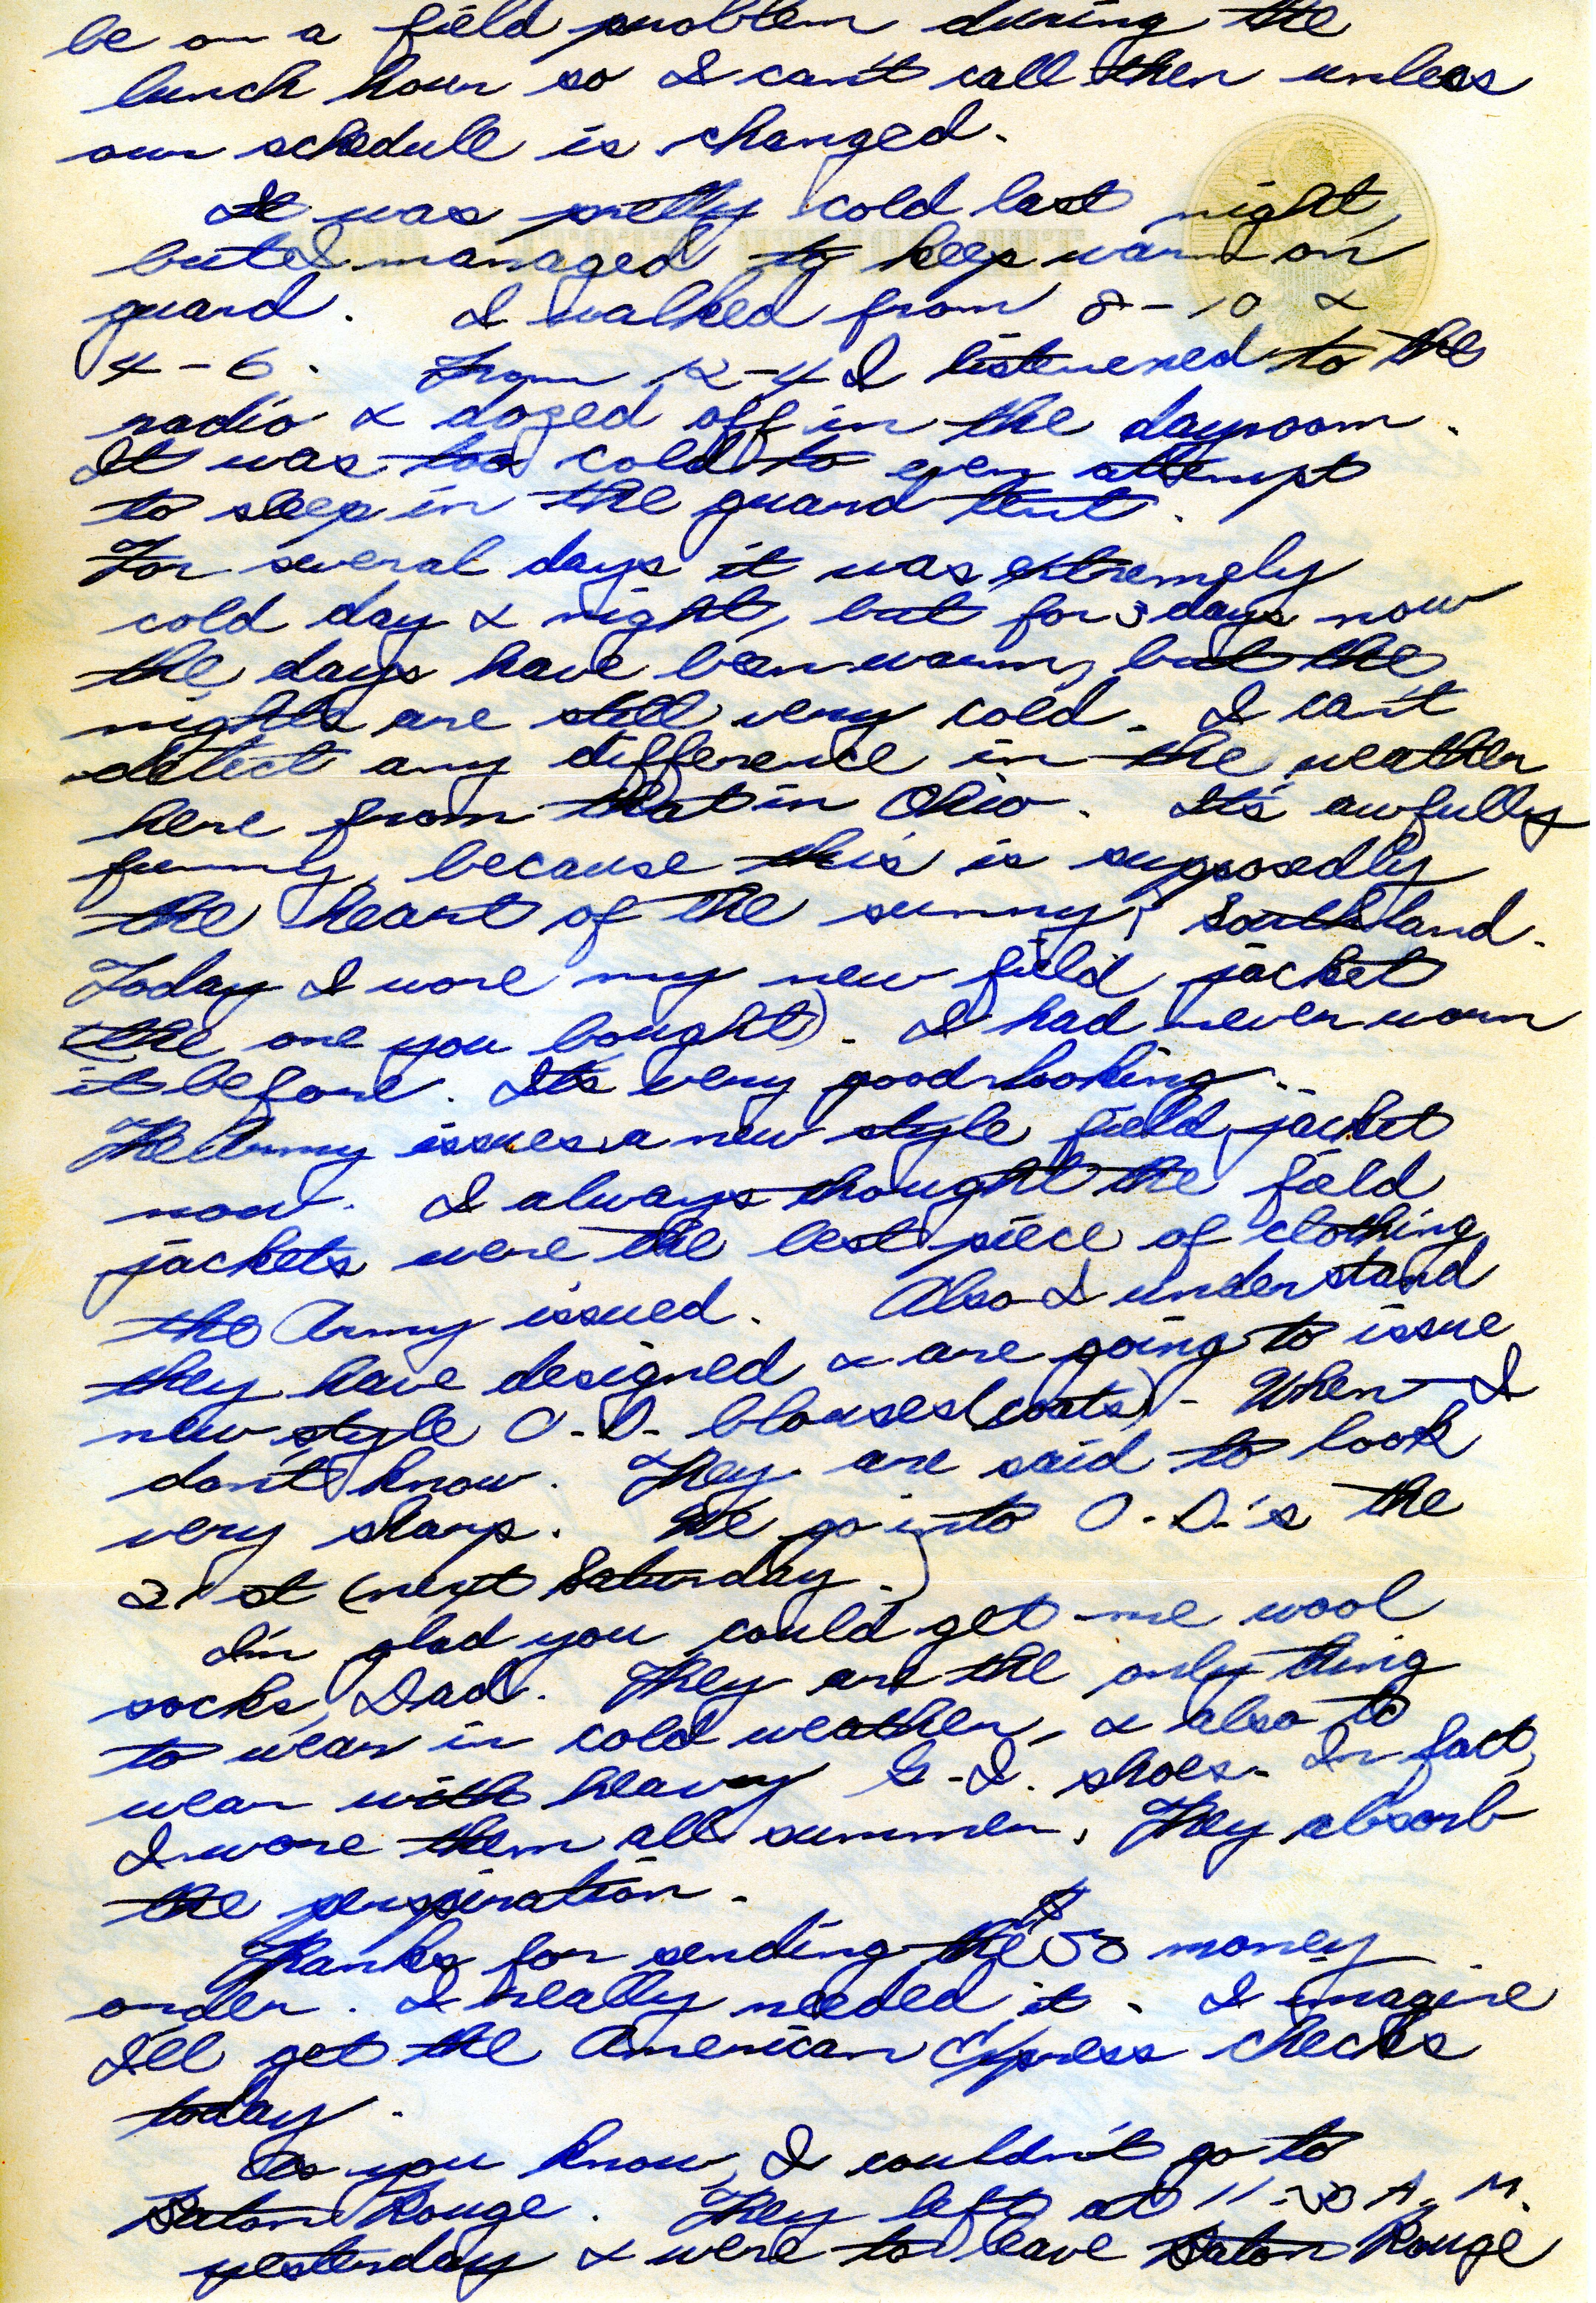 be on a field problem during the
lunch hour so I can't call then unless
our schedule is changed.
It was pretty cold last night,
but I managed to keep warm on
guard. I walked from 8-10 &
4-6. From 12-4 I listenened to the
radio & dozed off in the dayroom.
It was too cold to even attempt
to sleep in the guard tent.
For several days it was extremely
cold day & night, but for 3 days now
the days have been warm, but the
nights are still very cold. I can't
detect any difference in the weather
here from that in Ohio. It's awfully
funny, because this is supposedly
the heart of the sunny, Southland.
Today I wore my new field jacket
(the one you bought). I had never worn
it before. It's very good-looking.
The Army issues a new style field jacket
now. I always thought the field
jackets were the best piece of clothing
the Army issued. Also I understand
they have designed & are going to issue
new style O.D. blouses (coats) - When I
don't know. They are said to look
very sharp. We go into O.D.'s the
21st (next Saturday.)
I'm glad you could get me wool
socks, Dad. They are the only thing
to wear in cold weather, & also to
wear with heavy G.I. shoes. In fact,
I wore them all summer. They absorb
the perspiration.
Thanks for sending the $50 money
order. I really needed it. I imagine
I'll get the American Express checks
today.
As you know, I couldn't go to
Baton Rouge. They left at 11:30 A.M.
yesterday & were to leave Baton Rouge